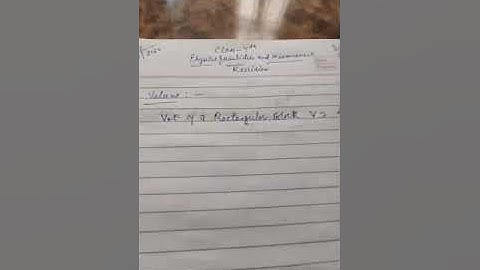 Class - 7th
Physical Quantities and Measurement
Revision
Volume : -
Vol. of a Rectangular block V =